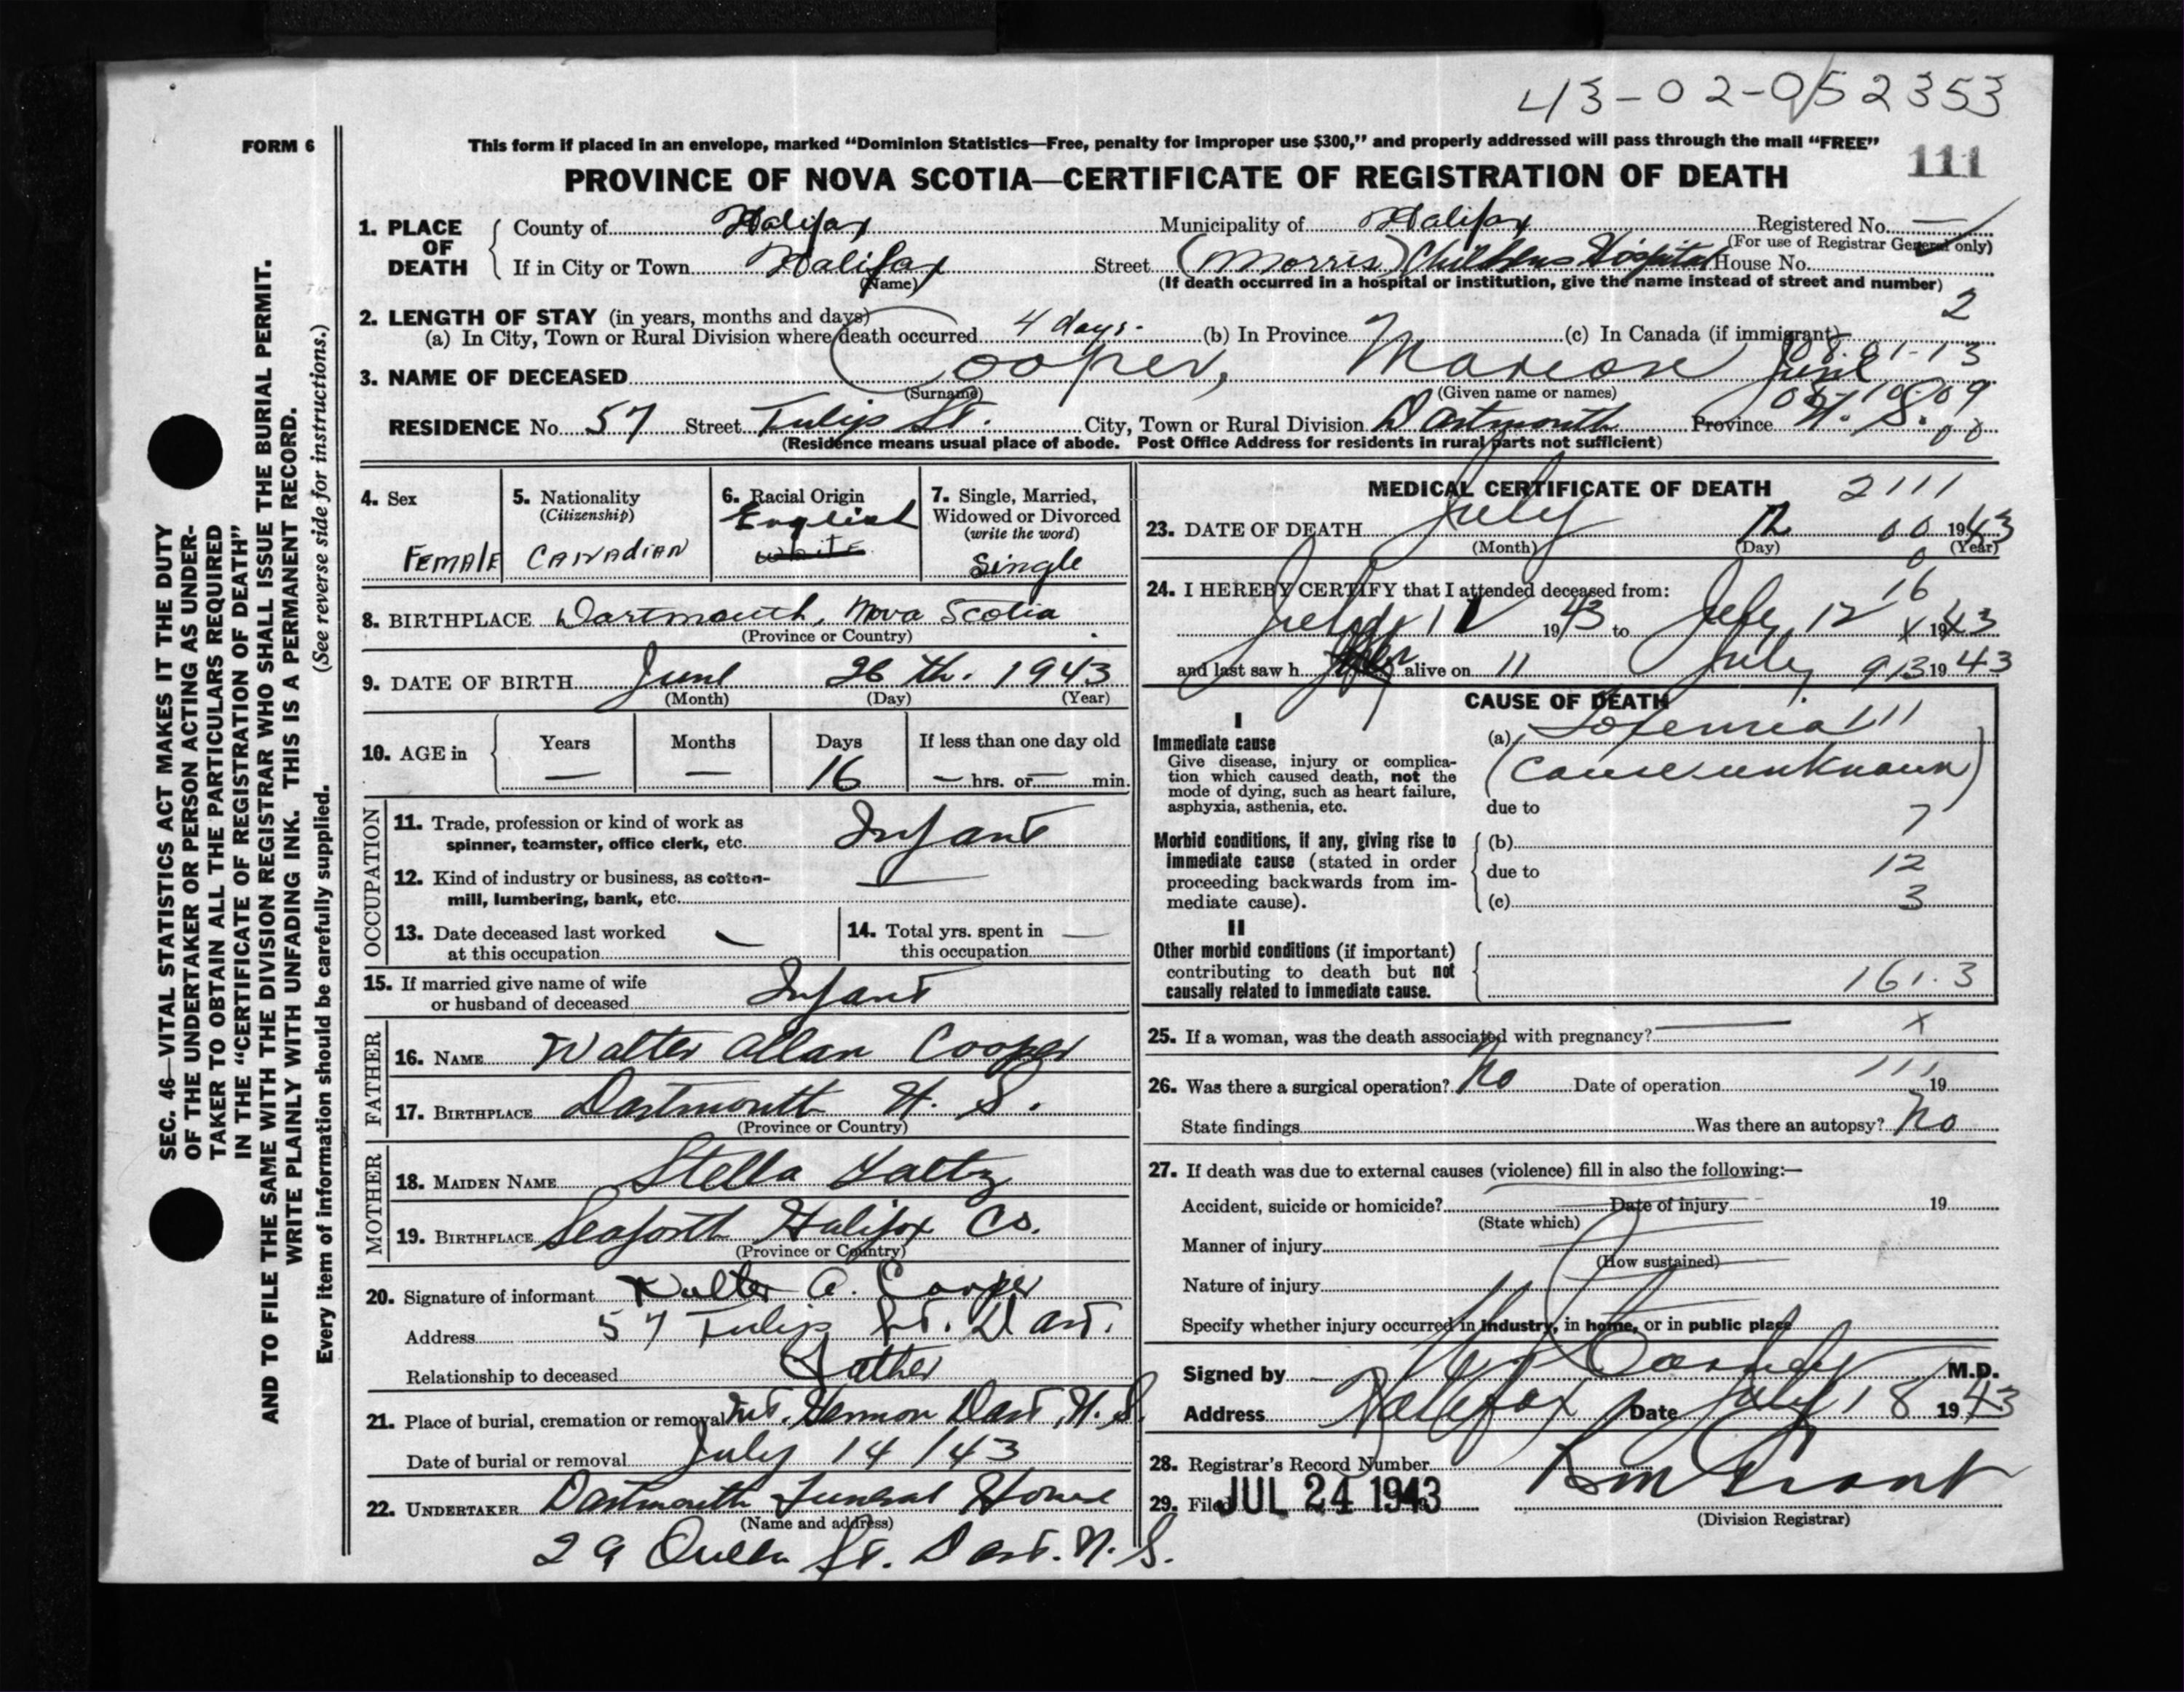 43-02-052353
FORM 6
This form if placed in an envelope, marked “Dominion Statistics—Free, penalty for improper use $300,” and properly addressed will pass through the mail “FREE”
111
PROVINCE OF NOVA SCOTIA—CERTIFICATE OF REGISTRATION OF DEATH
1. PLACE OF DEATH
County of Halifax Municipality of Halifax Registered No. —
(For use of Registrar General only)
If in City or Town Halifax Street (Morris) Childrens Hospital House No.
(Name) (If death occurred in a hospital or institution, give the name instead of street and number)
2
2. LENGTH OF STAY (in years, months and days)
(a) In City, Town or Rural Division where death occurred 4 days. (b) In Province (c) In Canada (if immigrant)
3. NAME OF DECEASED Cooper, Marion June
(Surname) (Given name or names)
RESIDENCE No. 57 Street Tulip St. City, Town or Rural Division Dartmouth Province N. S.
(Residence means usual place of abode. Post Office Address for residents in rural parts not sufficient)
4. Sex
Female
5. Nationality
(Citizenship)
Canadian
6. Racial Origin
English
White
7. Single, Married,
Widowed or Divorced
(write the word)
Single
8. BIRTHPLACE Dartmouth, Nova Scotia
(Province or Country)
9. DATE OF BIRTH June 26th. 1943
(Month) (Day) (Year)
10. AGE in
Years Months Days If less than one day old
— — 16 — hrs. or — min.
OCCUPATION
11. Trade, profession or kind of work as
spinner, teamster, office clerk, etc. Infant
12. Kind of industry or business, as cotton-
mill, lumbering, bank, etc. —
13. Date deceased last worked
at this occupation
14. Total yrs. spent in
this occupation
15. If married give name of wife
or husband of deceased Infant
FATHER
16. NAME Walter Allan Cooper
17. BIRTHPLACE Dartmouth N. S.
(Province or Country)
MOTHER
18. MAIDEN NAME Stella
19. BIRTHPLACE Seaforth Halifax Co.
(Province or Country)
20. Signature of informant Walter A. Cooper
Address 57 Tulip St. Dart.
Relationship to deceased Father
21. Place of burial, cremation or removal Mt. Hermon Dart N. S.
Date of burial or removal July 14/43
22. UNDERTAKER Dartmouth Funeral Home
(Name and address)
29 Queen St. Dart. N. S.
MEDICAL CERTIFICATE OF DEATH 2111
23. DATE OF DEATH July 12 1943
(Month) (Day) (Year)
24. I HEREBY CERTIFY that I attended deceased from:
16
July 11 1943 to July 12 1943
and last saw h er alive on 11 July 1943
913
CAUSE OF DEATH
I
Immediate cause
Give disease, injury or complica-
tion which caused death, not the
mode of dying, such as heart failure,
asphyxia, asthenia, etc.
(a) Toxemia 111
(cause unknown)
due to
7
Morbid conditions, if any, giving rise to
immediate cause (stated in order
proceeding backwards from im-
mediate cause).
(b)
due to 12
(c) 3
II
Other morbid conditions (if important)
contributing to death but not
causally related to immediate cause.
161.3
25. If a woman, was the death associated with pregnancy? — x
26. Was there a surgical operation? No Date of operation 111 19
State findings Was there an autopsy? No
27. If death was due to external causes (violence) fill in also the following:—
Accident, suicide or homicide? Date of injury 19
(State which)
Manner of injury
(How sustained)
Nature of injury
Specify whether injury occurred in Industry, in home, or in public place
Signed by M.D.
Address Halifax Date July 18 1943
28. Registrar's Record Number
29. Filed JUL 24 1943
(Division Registrar)
SEC. 46—VITAL STATISTICS ACT MAKES IT THE DUTY
OF THE UNDERTAKER OR PERSON ACTING AS UNDER-
TAKER TO OBTAIN ALL THE PARTICULARS REQUIRED
IN THE “CERTIFICATE OF REGISTRATION OF DEATH”
AND TO FILE THE SAME WITH THE DIVISION REGISTRAR WHO SHALL ISSUE THE BURIAL PERMIT.
WRITE PLAINLY WITH UNFADING INK. THIS IS A PERMANENT RECORD.
Every item of information should be carefully supplied. (See reverse side for instructions.)